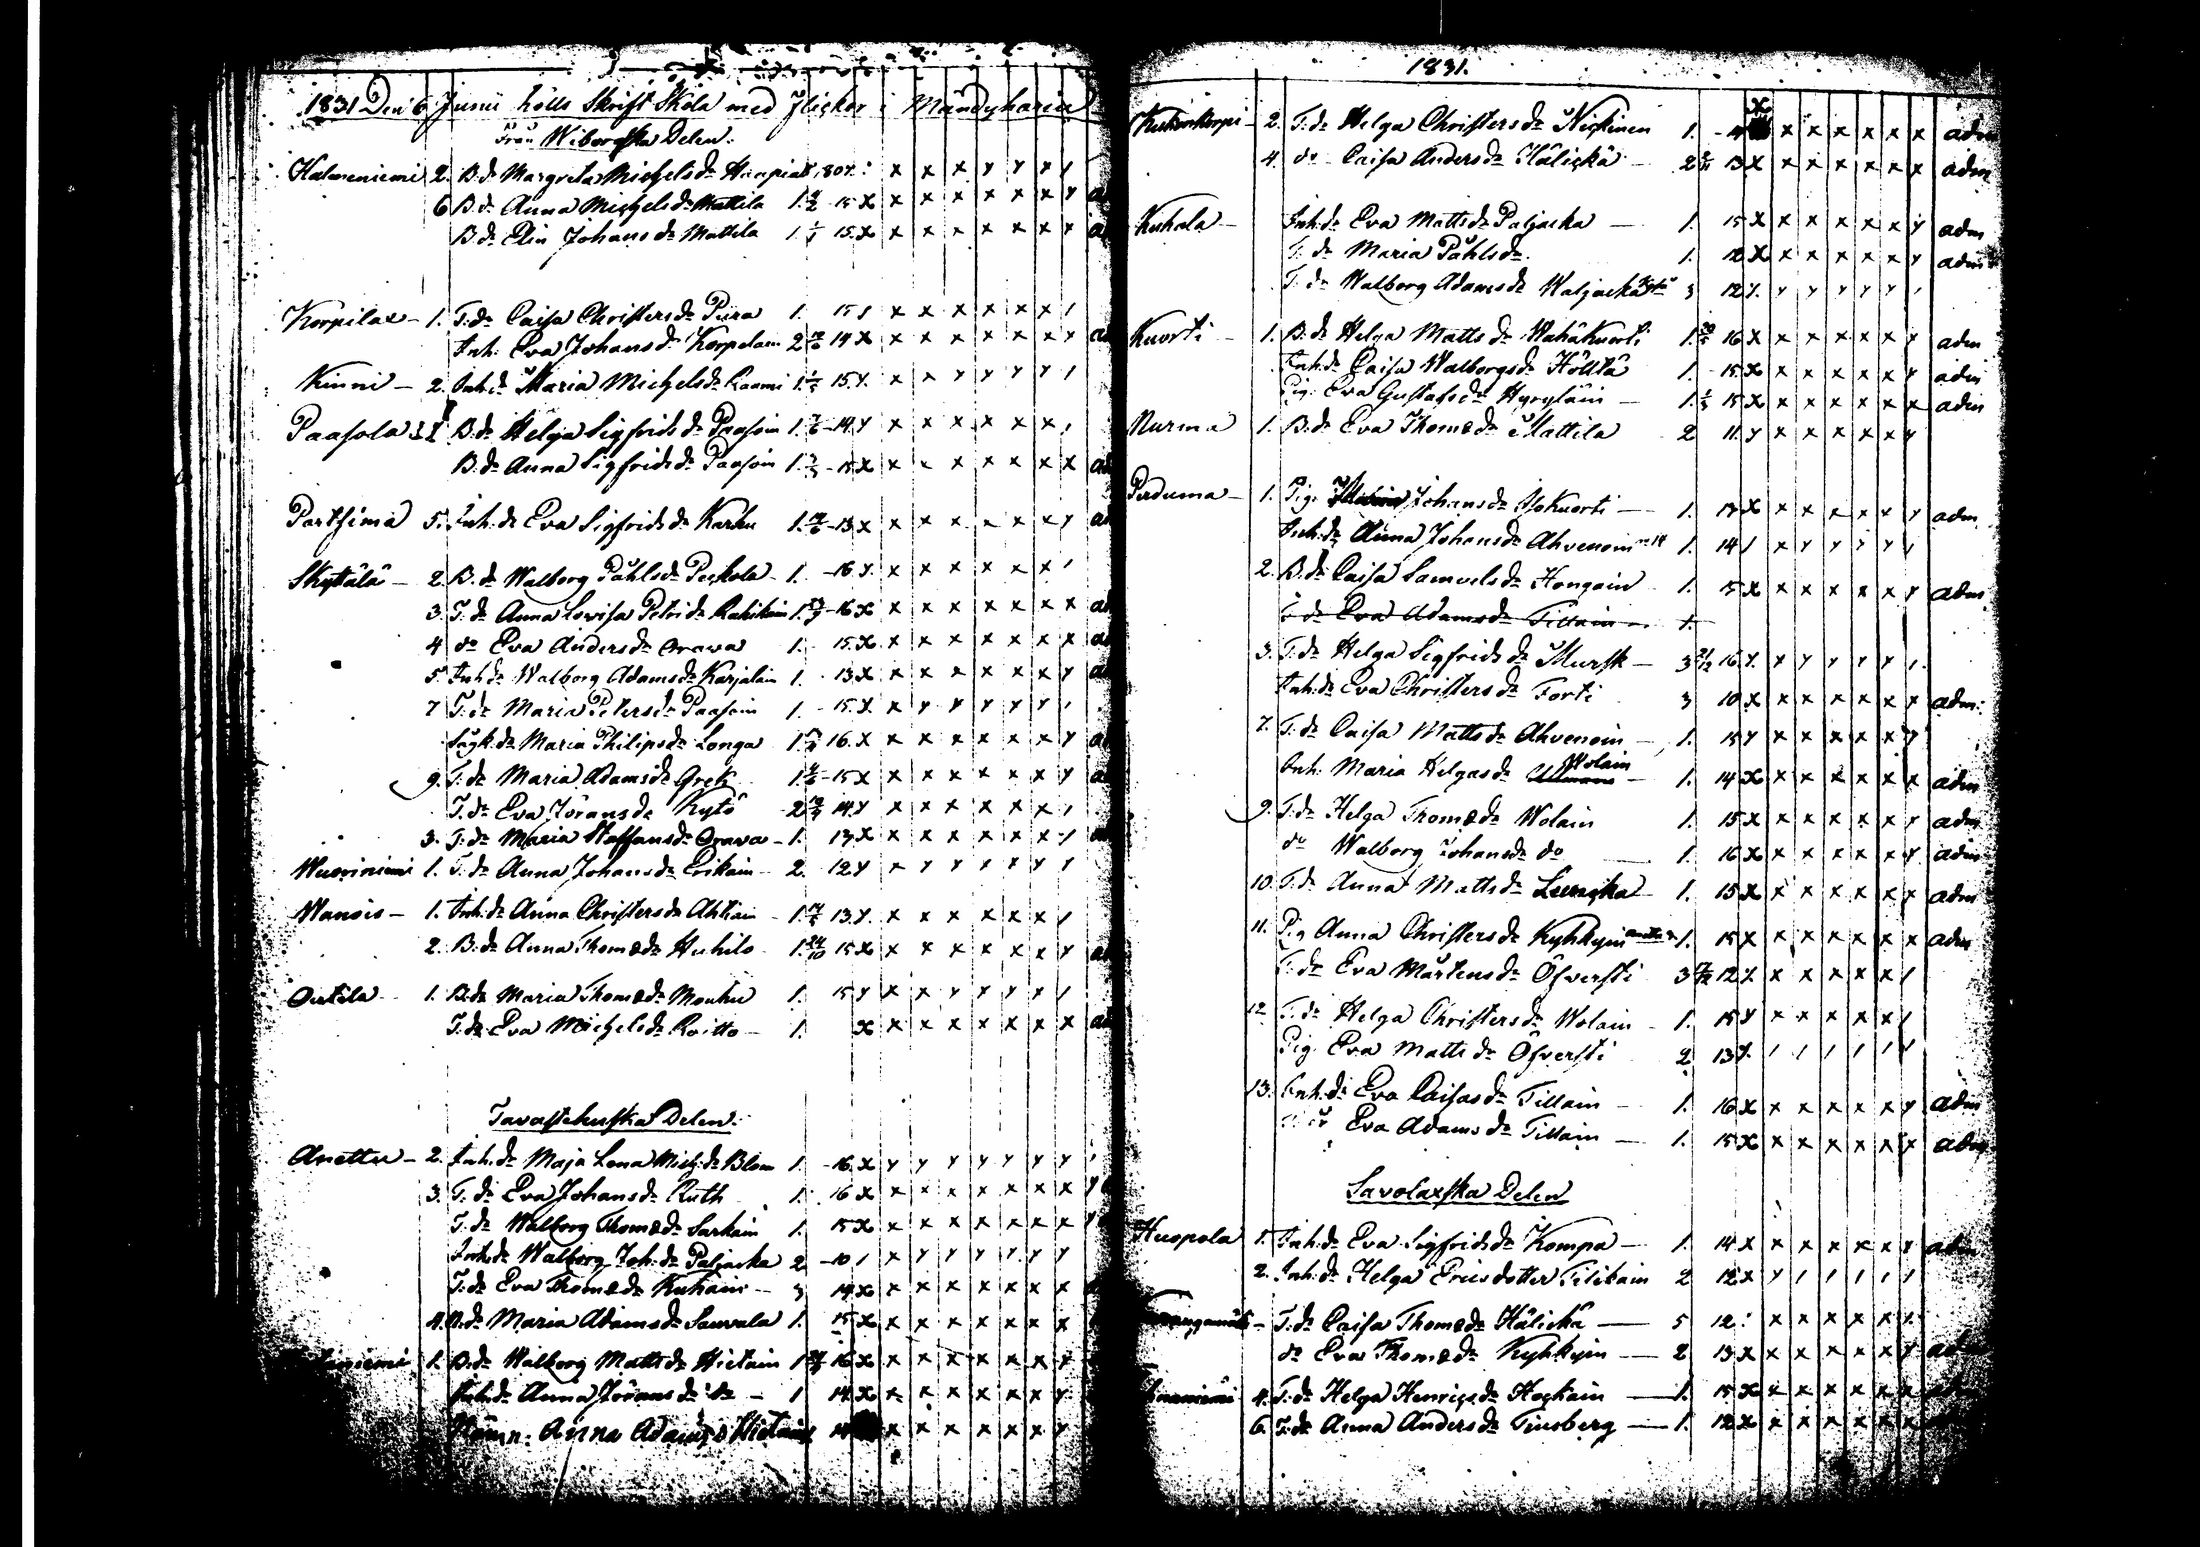 1831 Den 6 Junii hölls Skrift Skola med Flickor i Mändyharju
Från Wiborgska Delen.
Halmeniemi 2. B.dr Margreta Michelsdr 1807. x x x y y x /
6 B.dr Anna Michelsdr Mattila 1. 15 x x x x x x x y
B.dr Elin Johansdr Mattila 1. 15. x x x x x x x y
Korpilax 1. T.dr Caisa Christersdr Piira 1. 15 / x x x x x x /
Inh. Eva Johansdr Korpelain 2 14 x x x x x x x y
Kinni 2. Inh.dr Maria Michelsdr 1. 15. y. x x y y y y /
Paasola B.dr Helga Sigfridsdr Paasoin 1. 14. y x x x x x x /
B.dr Anna Sigfridsdr Paasoin 1. 15 x x x x x x x x
Partsima 5. Inh.dr Eva Sigfridsdr Karhu 1. 13 x x x x x x x y
Skytälä 2. B.dr Walborg Påhlsdr Peskola 1. 16 y. x x x x x x /
3. T.dr Anna Lovisa Petridr Rahikain 1. 16 x x x x x x x x
4 do Eva Andersdr Orava 1. 15. x x x x x x x x
5 Inh.dr Walborg Adamsdr Karjalain 1. 13 x x x x x x x y
7 T.dr Maria Petersdr Paasoin 1. 15. y. x y y y y y /
Maria Philipsdr Longa 1. 16. x x x x x x x y
9. T.dr Maria Adamsdr Grek 1. 15 x x x x x x x y
T.dr Eva Jöransdr Kytö 2 14. y x x x x x x /
3. T.dr Maria Staffansdr Orava 1. 13 x x x x x x x /
Wuorinimi 1. T.dr Anna Johansdr Erikain 2. 12 y x y y y y y y
Wanois 1. Inh.dr Anna Christersdr Ahtiain 1. 13. y. x x x x x x /
2. B.dr Anna Thomædr Huhilo 1. 24/10 15 x x x x x x x y
Outila 1. B.dr Maria Thomædr Mouhu 1. 15 y x x y y y x /
T.dr Eva Michelsdr Roitto 1. x x x x x x x x
Tavastehusska Delen.
Anettu 2. Inh.dr Maja Lena Mich.dr Blom 1. 16. x y y y y y y y
3. T.dr Eva Johansdr Ruth 1. 16 x x x x x x x x y
T.dr Walborg Thomædr Sarkain 1. 15 x x x x x x x x y
Inh.dr Walborg Joh.dr Paljacka 2 10 / x y y y y y y
T.dr Eva Thomædr Kuhain 3 14. x x x x x x x x
4. N.dr Maria Adamsdr Sauvala 1. 15 x x x x x x x x
1. B.dr Walborg Mattsdr Hietain 1 16 x x x x x x x x
Inh.dr Anna Jöransdr do 1 14. x x x x x x x y
Anna Adamsd Hietain x x x x x x y
1831.
2. T.dr Helga Christersdr Nickinen 1. x x x x x x x adm
4. do Caisa Andersdr Hälickä 2 13 x x x x x x x adm
Kuhala Inh.dr Eva Mattsdr Paljacka 1. 15 x x x x x x y adm
T.dr Maria Påhlsdr 1. 12 x x x x x x y adm
T.dr Walborg Adamsdr Waljacka 3 12 y. y y y y y /
Kuorti 1. B.dr Helga Mattsdr Wähäkuorti 1. 16 x x x x x x y adm
Inh.dr Caisa Walborgsdr Hölttä 1. 15. x x x x x x y adm
Pig. Eva Gustafsdr Hyrylain 1. 15 x x x x x x x adm
Nurma 1. B.dr Eva Thomædr Mattila 2 11. y x x x x x y
Perduma 1. Pig. Johansdr Isokuorti 1. 17 x x x x x x y adm
Inh.dr Anna Johansdr Ahvenoin 1. 14 / x y y y y /
2. B.dr Caisa Samuelsdr Hongoin 1. 15 x x x x x x y adm
T.dr Eva Adamsdr Tillain 1.
3. T.dr Helga Sigfridsdr Mursk 3 16. y. y y y y y /
Inh.dr Eva Christersdr Forti 3 10 x x x x x x x adm
7. T.dr Caisa Mattsdr Ahvenoin 1. 15 y x x x x x y
Inh. Maria Helgasdr Wolain 1. 14 x x x x x x x adm
9. T.dr Helga Thomædr Wolain 1. 15 x x x x x x y adm
do Walborg Johansdr do 1. 16 x x x x x x y adm
10. T.dr Anna Mattsdr 1. 15 x x x x x x y adm
11. Pig Anna Christersdr Kyhkyin 1. 15 x x x x x x x adm
T.dr Eva Mårtensdr Öfversti 3 12 y. x x x x x /
12 T.dr Helga Christersdr Wolain 1. 15 y x x x x x /
Pig. Eva Mattsdr Öfversti 2 13 y. / / / / / /
13. Inh.dr Eva Caisasdr Tillain 1. 16 x x x x x x y adm
Eva Adamsdr Tillain 1. 15 x x x x x x x adm
Savolaxska Delen
Huopola 1. Inh.dr Eva Sigfridsdr Kompa 1. 14 x x x x x x y adm
2. Inh.dr Helga Ericsdotter Tilikain 2 12 x y / / / / /
T.dr Caisa Thomædr Hälickä 5 12. x x x x x y.
do Eva Thomædr Kyhkyin 2 13 x x x x x x y
4. T.dr Helga Henricsdr Hockain 1. 15 x x x x x x x
6. T.dr Anna Andersdr Tinsberg 1. 12 x x x x x x x